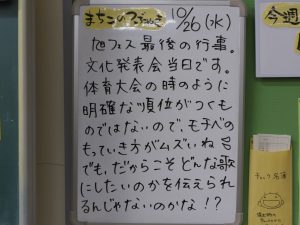 まちこのつぶやき 10/26(水)
旭フェス最後の行事。
文化発表会当日です。
体育大会の時のように
明確な順位がつくも
のではないので、モチベの
もっていき方がムズいね
でも、だからこそどんな歌
にしたいのかを伝えられ
るんじゃないのかな!?
今週
チェック名簿